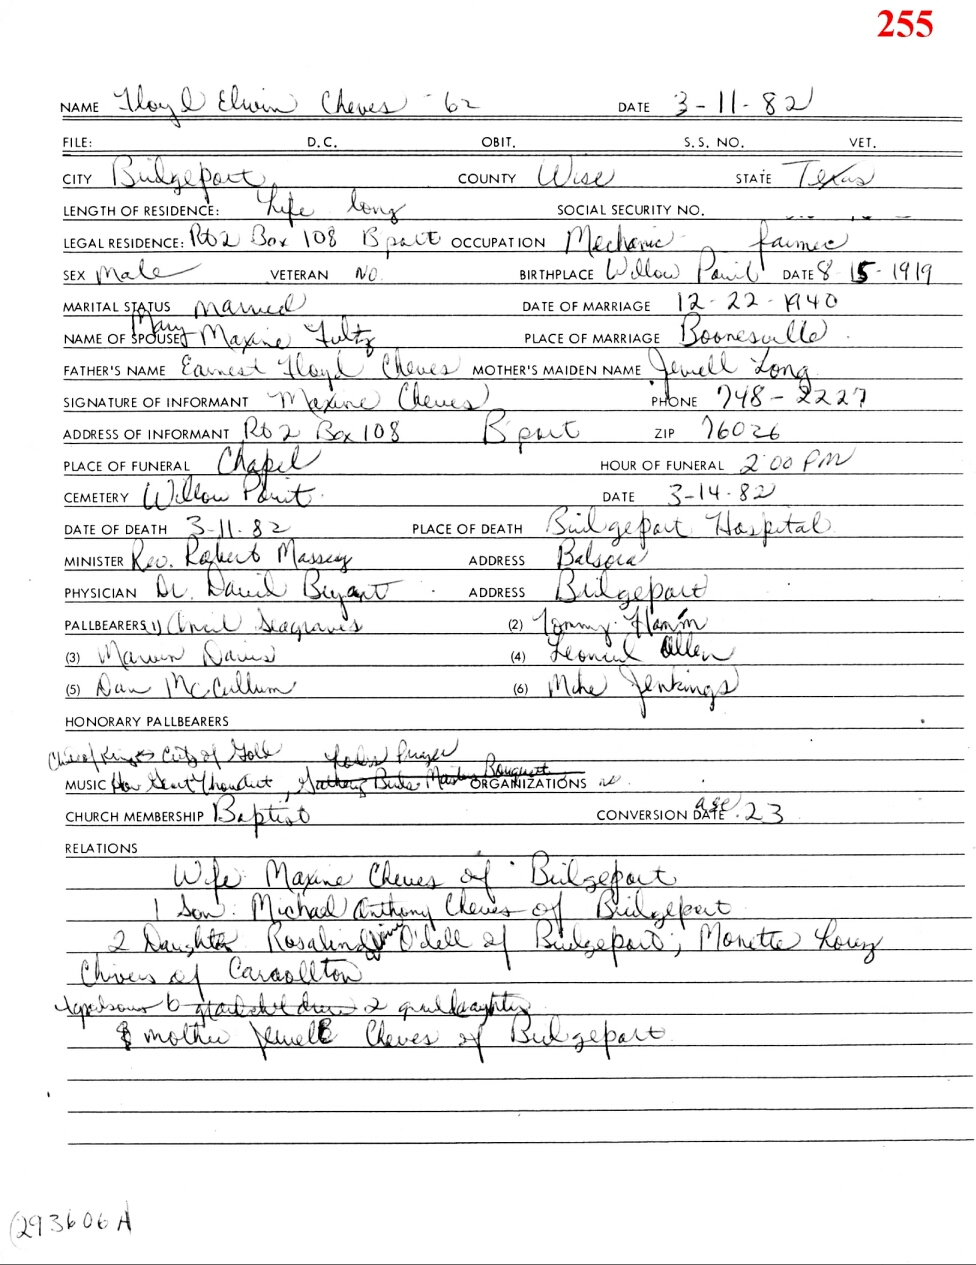 255
NAME Floyd Elwin Cheves - 62 DATE 3-11-82
FILE: D.C. OBIT. S.S. NO. VET.
CITY Bridgeport COUNTY Wise STATE Texas
LENGTH OF RESIDENCE: Life long SOCIAL SECURITY NO.
LEGAL RESIDENCE: Rt 2 Box 108 Bport OCCUPATION Mechanic farmer
SEX Male VETERAN NO. BIRTHPLACE Willow Point DATE 8-15-1919
MARITAL STATUS married DATE OF MARRIAGE 12-22-1940
NAME OF SPOUSE Mary Maxine Fultz PLACE OF MARRIAGE Boonesville
FATHER'S NAME Earnest Floyd Cheves MOTHER'S MAIDEN NAME Jewell Long
SIGNATURE OF INFORMANT Maxine Cheves PHONE 748-2227
ADDRESS OF INFORMANT Rt 2 Box 108 Bport ZIP 76026
PLACE OF FUNERAL Chapel HOUR OF FUNERAL 2:00 PM
CEMETERY Willow Point DATE 3-14-82
DATE OF DEATH 3-11-82 PLACE OF DEATH Bridgeport Hospital
MINISTER Rev. Robert Massey ADDRESS Balsora
PHYSICIAN Dr. David Bryant ADDRESS Bridgeport
PALLBEARERS (1) Seagraves (2) Tommy Hamm
(3) Marvin Davis (4) Leonard Allen
(5) Dan McCullum (6) Mike Jenkings
HONORARY PALLBEARERS
City of Gold Prayer
MUSIC How Great Thou Art, Gathering Buds Masters Bouquet ORGANIZATIONS no.
CHURCH MEMBERSHIP Baptist CONVERSION DATE age 23
RELATIONS
Wife Maxine Cheves of Bridgeport
1 Son: Michael Anthony Cheves of Bridgeport
2 Daughters Rosalind O'dell of Bridgeport; Monette Louz
Chives of Carrollton
6 grandchildren 2 granddaughters
& mother Jewell Cheves of Bridgeport
(293606A